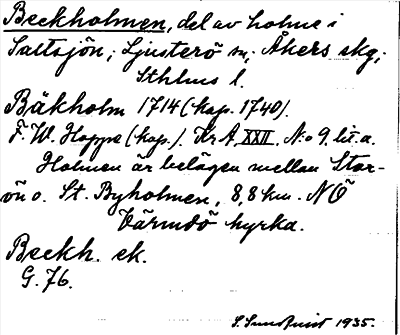 Beckholmen, del av holme i
Saltsjön; Ljusterö sn; Åkers skg;
Sthlms l.
Bäkholm 1714 (kop. 1740).
F. W. Hoppe (kop.). Kr A XXII. N:o 9. lit. a.
Holmen är belägen mellan Stor-
ön o. St. Byholmen, 8,8 km. NÖ
Värmdö kyrka.
Beckh. ek.
G. 76.
S. Sundquist 1935.